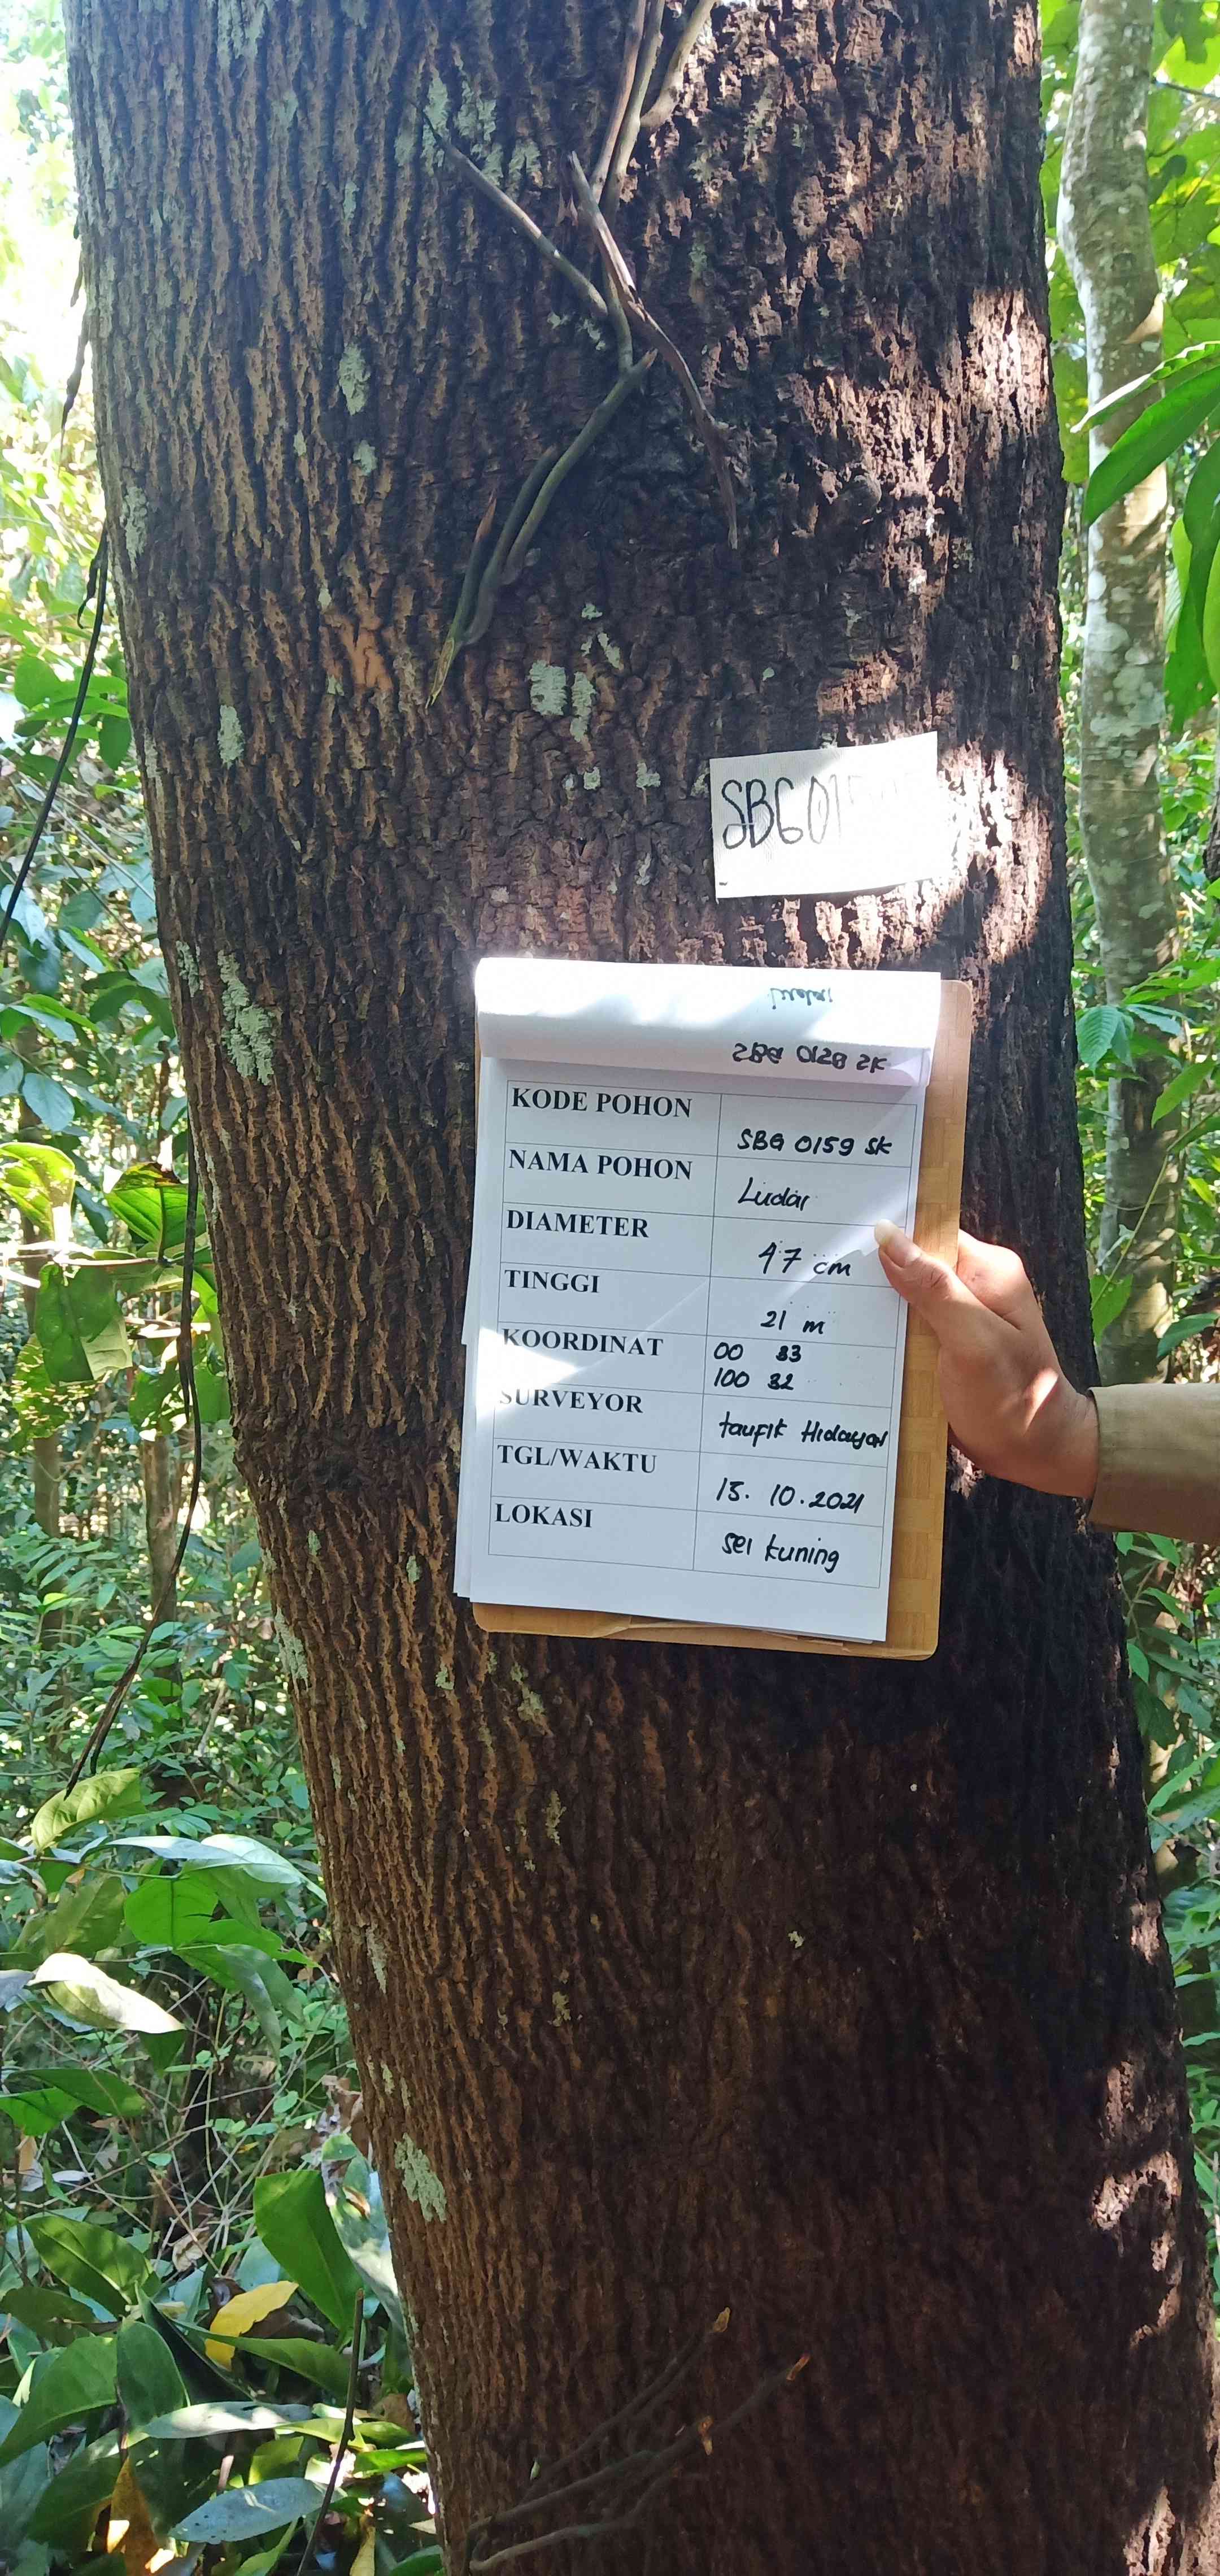 SBG01
Ludar
SBG 0158 SK
KODE POHON SBG 0159 SK
NAMA POHON Ludar
DIAMETER 47 cm
TINGGI 21 m
KOORDINAT 00 33
100 32
SURVEYOR taufik Hidayat
TGL/WAKTU 15. 10. 2021
LOKASI sei kuning